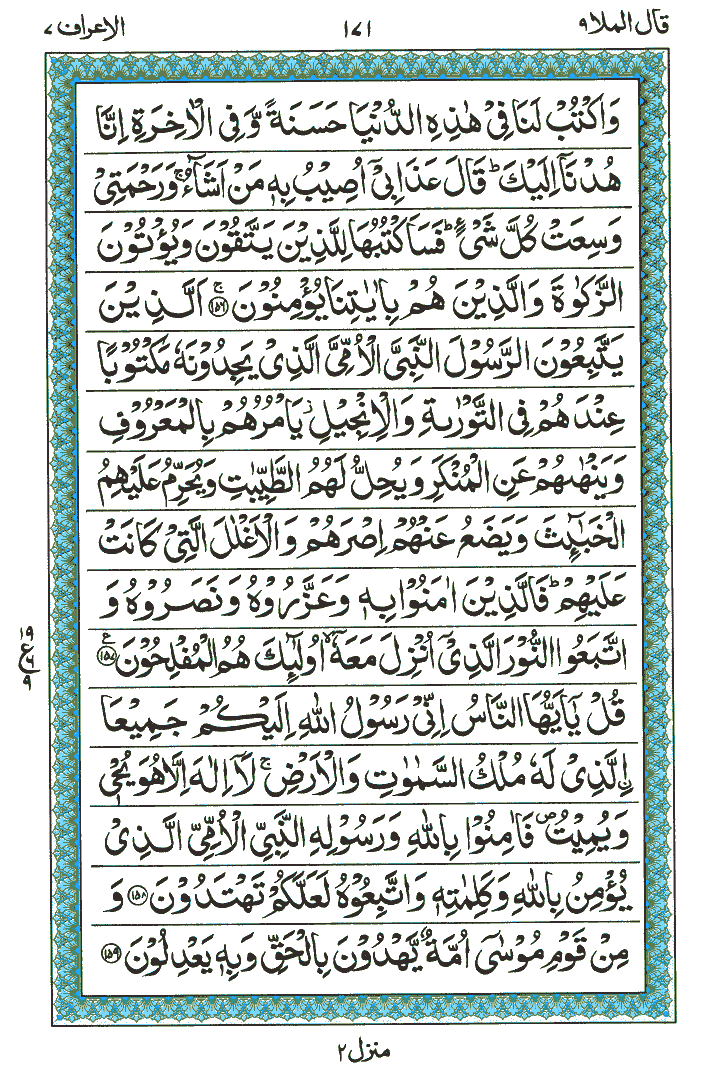 قال الملا ٩
١٧١
الاعراف ٧
وَاكْتُبْ لَنَا فِیْ هٰذِهِ الدُّنْیَا حَسَنَةً وَّفِی الْاٰخِرَةِ اِنَّا
هُدْنَاۤ اِلَیْكَ ؕ قَالَ عَذَابِیْۤ اُصِیْبُ بِهٖ مَنْ اَشَآءُ ۚ وَرَحْمَتِیْ
وَسِعَتْ كُلَّ شَیْءٍ ؕ فَسَاَكْتُبُهَا لِلَّذِیْنَ یَتَّقُوْنَ وَیُؤْتُوْنَ
الزَّكٰوةَ وَالَّذِیْنَ هُمْ بِاٰیٰتِنَا یُؤْمِنُوْنَ ۚ ﴿۱۵۶﴾ اَلَّذِیْنَ
یَتَّبِعُوْنَ الرَّسُوْلَ النَّبِیَّ الْاُمِّیَّ الَّذِیْ یَجِدُوْنَهٗ مَكْتُوْبًا
عِنْدَهُمْ فِی التَّوْرٰىةِ وَالْاِنْجِیْلِ ؗ یَاْمُرُهُمْ بِالْمَعْرُوْفِ
وَیَنْهٰىهُمْ عَنِ الْمُنْكَرِ وَیُحِلُّ لَهُمُ الطَّیِّبٰتِ وَیُحَرِّمُ عَلَیْهِمُ
الْخَبٰٓىِٕثَ وَیَضَعُ عَنْهُمْ اِصْرَهُمْ وَالْاَغْلٰلَ الَّتِیْ كَانَتْ
عَلَیْهِمْ ؕ فَالَّذِیْنَ اٰمَنُوْا بِهٖ وَعَزَّرُوْهُ وَنَصَرُوْهُ وَ
اتَّبَعُوا النُّوْرَ الَّذِیْۤ اُنْزِلَ مَعَهٗۤ ۙ اُولٰٓىِٕكَ هُمُ الْمُفْلِحُوْنَ ﴿۱۵۷﴾ ع
١٩
ع
٦
٩
قُلْ یٰۤاَیُّهَا النَّاسُ اِنِّیْ رَسُوْلُ اللّٰهِ اِلَیْكُمْ جَمِیْعَا
ِ۟الَّذِیْ لَهٗ مُلْكُ السَّمٰوٰتِ وَالْاَرْضِ ۚ لَاۤ اِلٰهَ اِلَّا هُوَ یُحْیٖ
وَیُمِیْتُ ۪ فَاٰمِنُوْا بِاللّٰهِ وَرَسُوْلِهِ النَّبِیِّ الْاُمِّیِّ الَّذِیْ
یُؤْمِنُ بِاللّٰهِ وَكَلِمٰتِهٖ وَاتَّبِعُوْهُ لَعَلَّكُمْ تَهْتَدُوْنَ ﴿۱۵۸﴾ وَ
مِنْ قَوْمِ مُوْسٰۤی اُمَّةٌ یَّهْدُوْنَ بِالْحَقِّ وَبِهٖ یَعْدِلُوْنَ ﴿۱۵۹﴾
منزل ٢